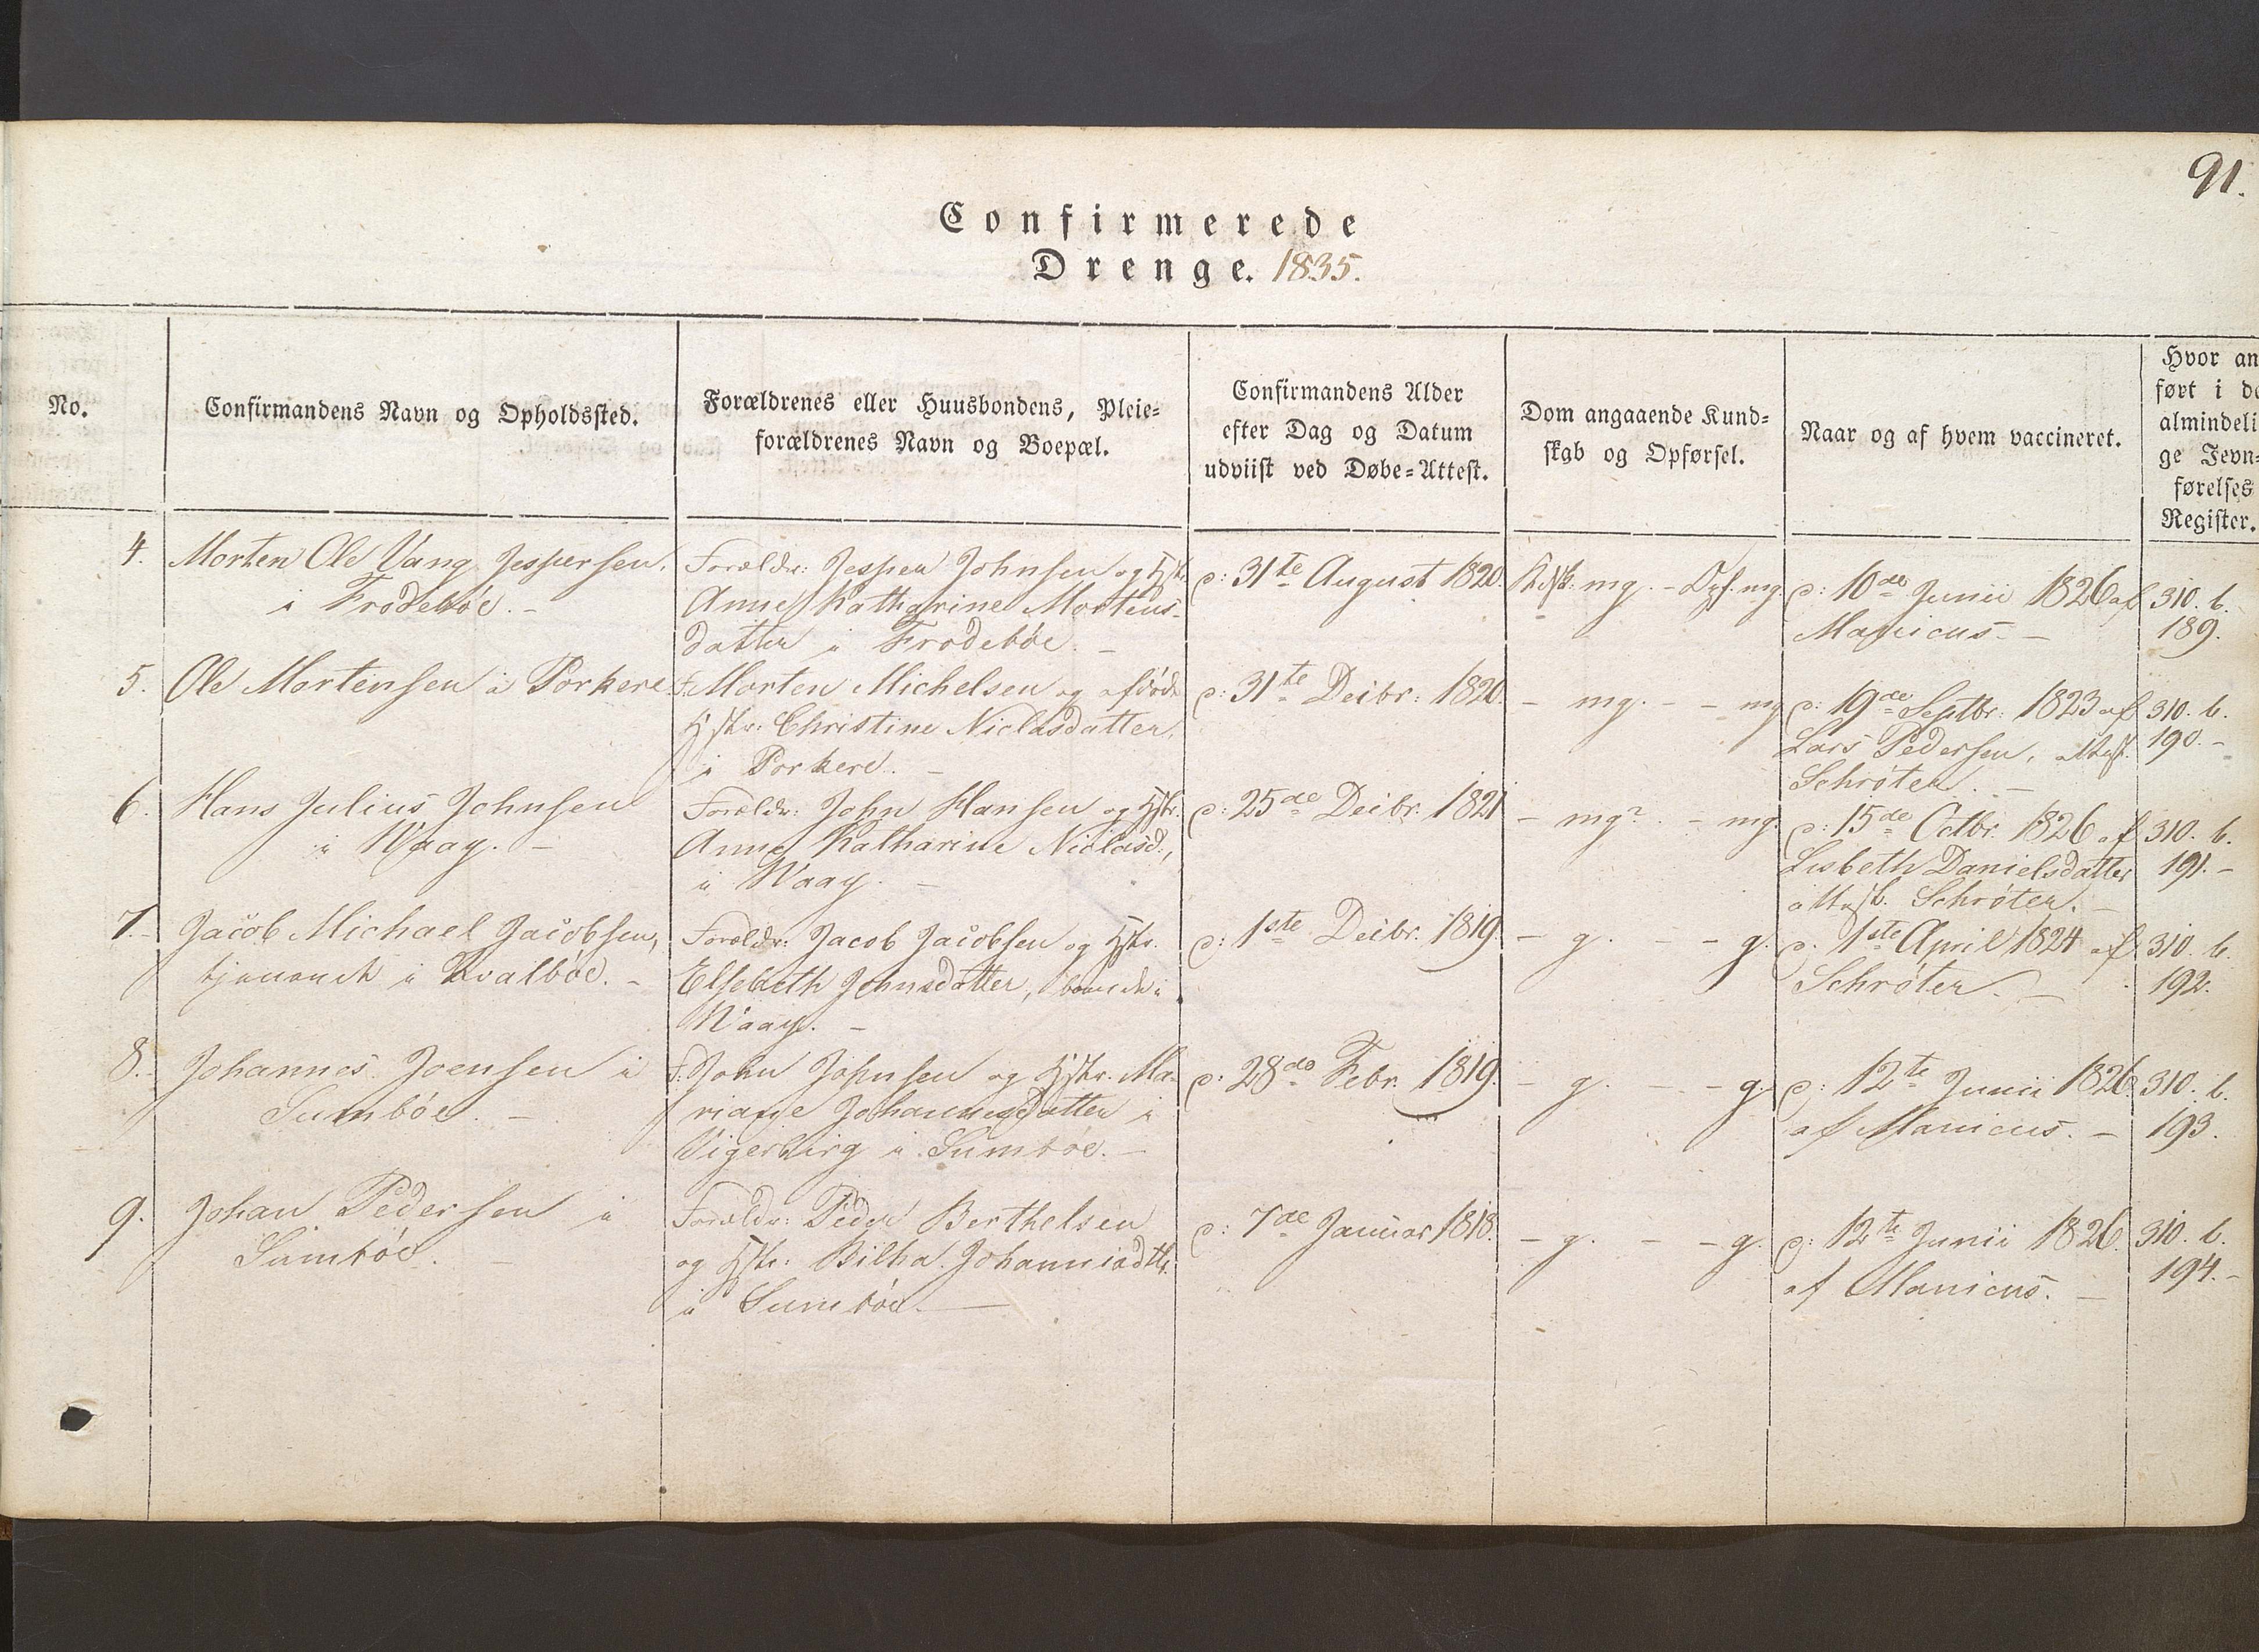 91.
Confirmerede
Drenge. 1835.
No.
Confirmandens Navn og Opholdssted.
Forældrenes eller Huusbondens, Pleie=
forældrenes Navn og Boepæl.
Confirmandens Alder
efter Dag og Datum
udviist ved Døbe=Attest.
Dom angaaende Kund=
skab og Opførsel.
Naar og af hvem vaccineret.
Hvor an
ført i de
almindeli
ge Jevn=
førelses
Register.
4.
Morten Ole Vang Jespersen,
i Frodebøe. -
Forældr: Jesper Johnsen og Hstr.
Anne Katharine Mortens-
datter i Frodebøe. -
d: 31te August 1820.
Kdsk: mg. - Opf. mg.
d: 10de Junii 1826 af
Manicus. -
310. b.
189.
5.
Ole Mortensen i Porkere
F: Morten Michelsen og afdøde
Hstr: Christine Niclasdatter,
i Porkere. -
d: 31te Decbr: 1820.
- mg. - - mg
d: 19de Septbr: 1823 af
Lars Pedersen, Attest.
Schrøter. -
310. b.
190. -
6.
Hans Julius Johnsen
i Waag. -
Forældr: John Hansen og Hstr.
Anne Katharine Niclasd.,
i Waag. -
d: 25de Decbr. 1821
- mg? - mg.
d: 15de Octbr. 1826 af
Lisbeth Danielsdatter
Attest. Schrøter. -
310. b.
191. -
7. -
Jacob Michael Jacobsen,
tjenende i Qvalbøe. -
Forældr: Jacob Jacobsen og Hstr.
Elsebeth Johnsdatter, boende i
Waag. -
d: 1ste Decbr. 1819.
- g. - - g.
d. 1ste April 1824 af
Schrøter. -
310. b.
192.
8. -
Johannes Joensen i
Sumbøe. -
F: John Johnsen og Hstr. Ma-
riane Johannesdatter i
Vigerbirg i Sumbøe. -
d: 28de Febr. 1819.
- g. - - g.
d: 12te Junii 1826.
af Manicus. -
310. b.
193.
9.
Johan Pedersen i
Sumbøe. -
Forældr: Peder Berthelsen
og Hstr: Bilha Johannisdtr.
i Sumbøe. -
d: 7de Januar 1818.
- g. - - g.
d: 12te Junii 1826.
af Manicus. -
310. b.
194. -